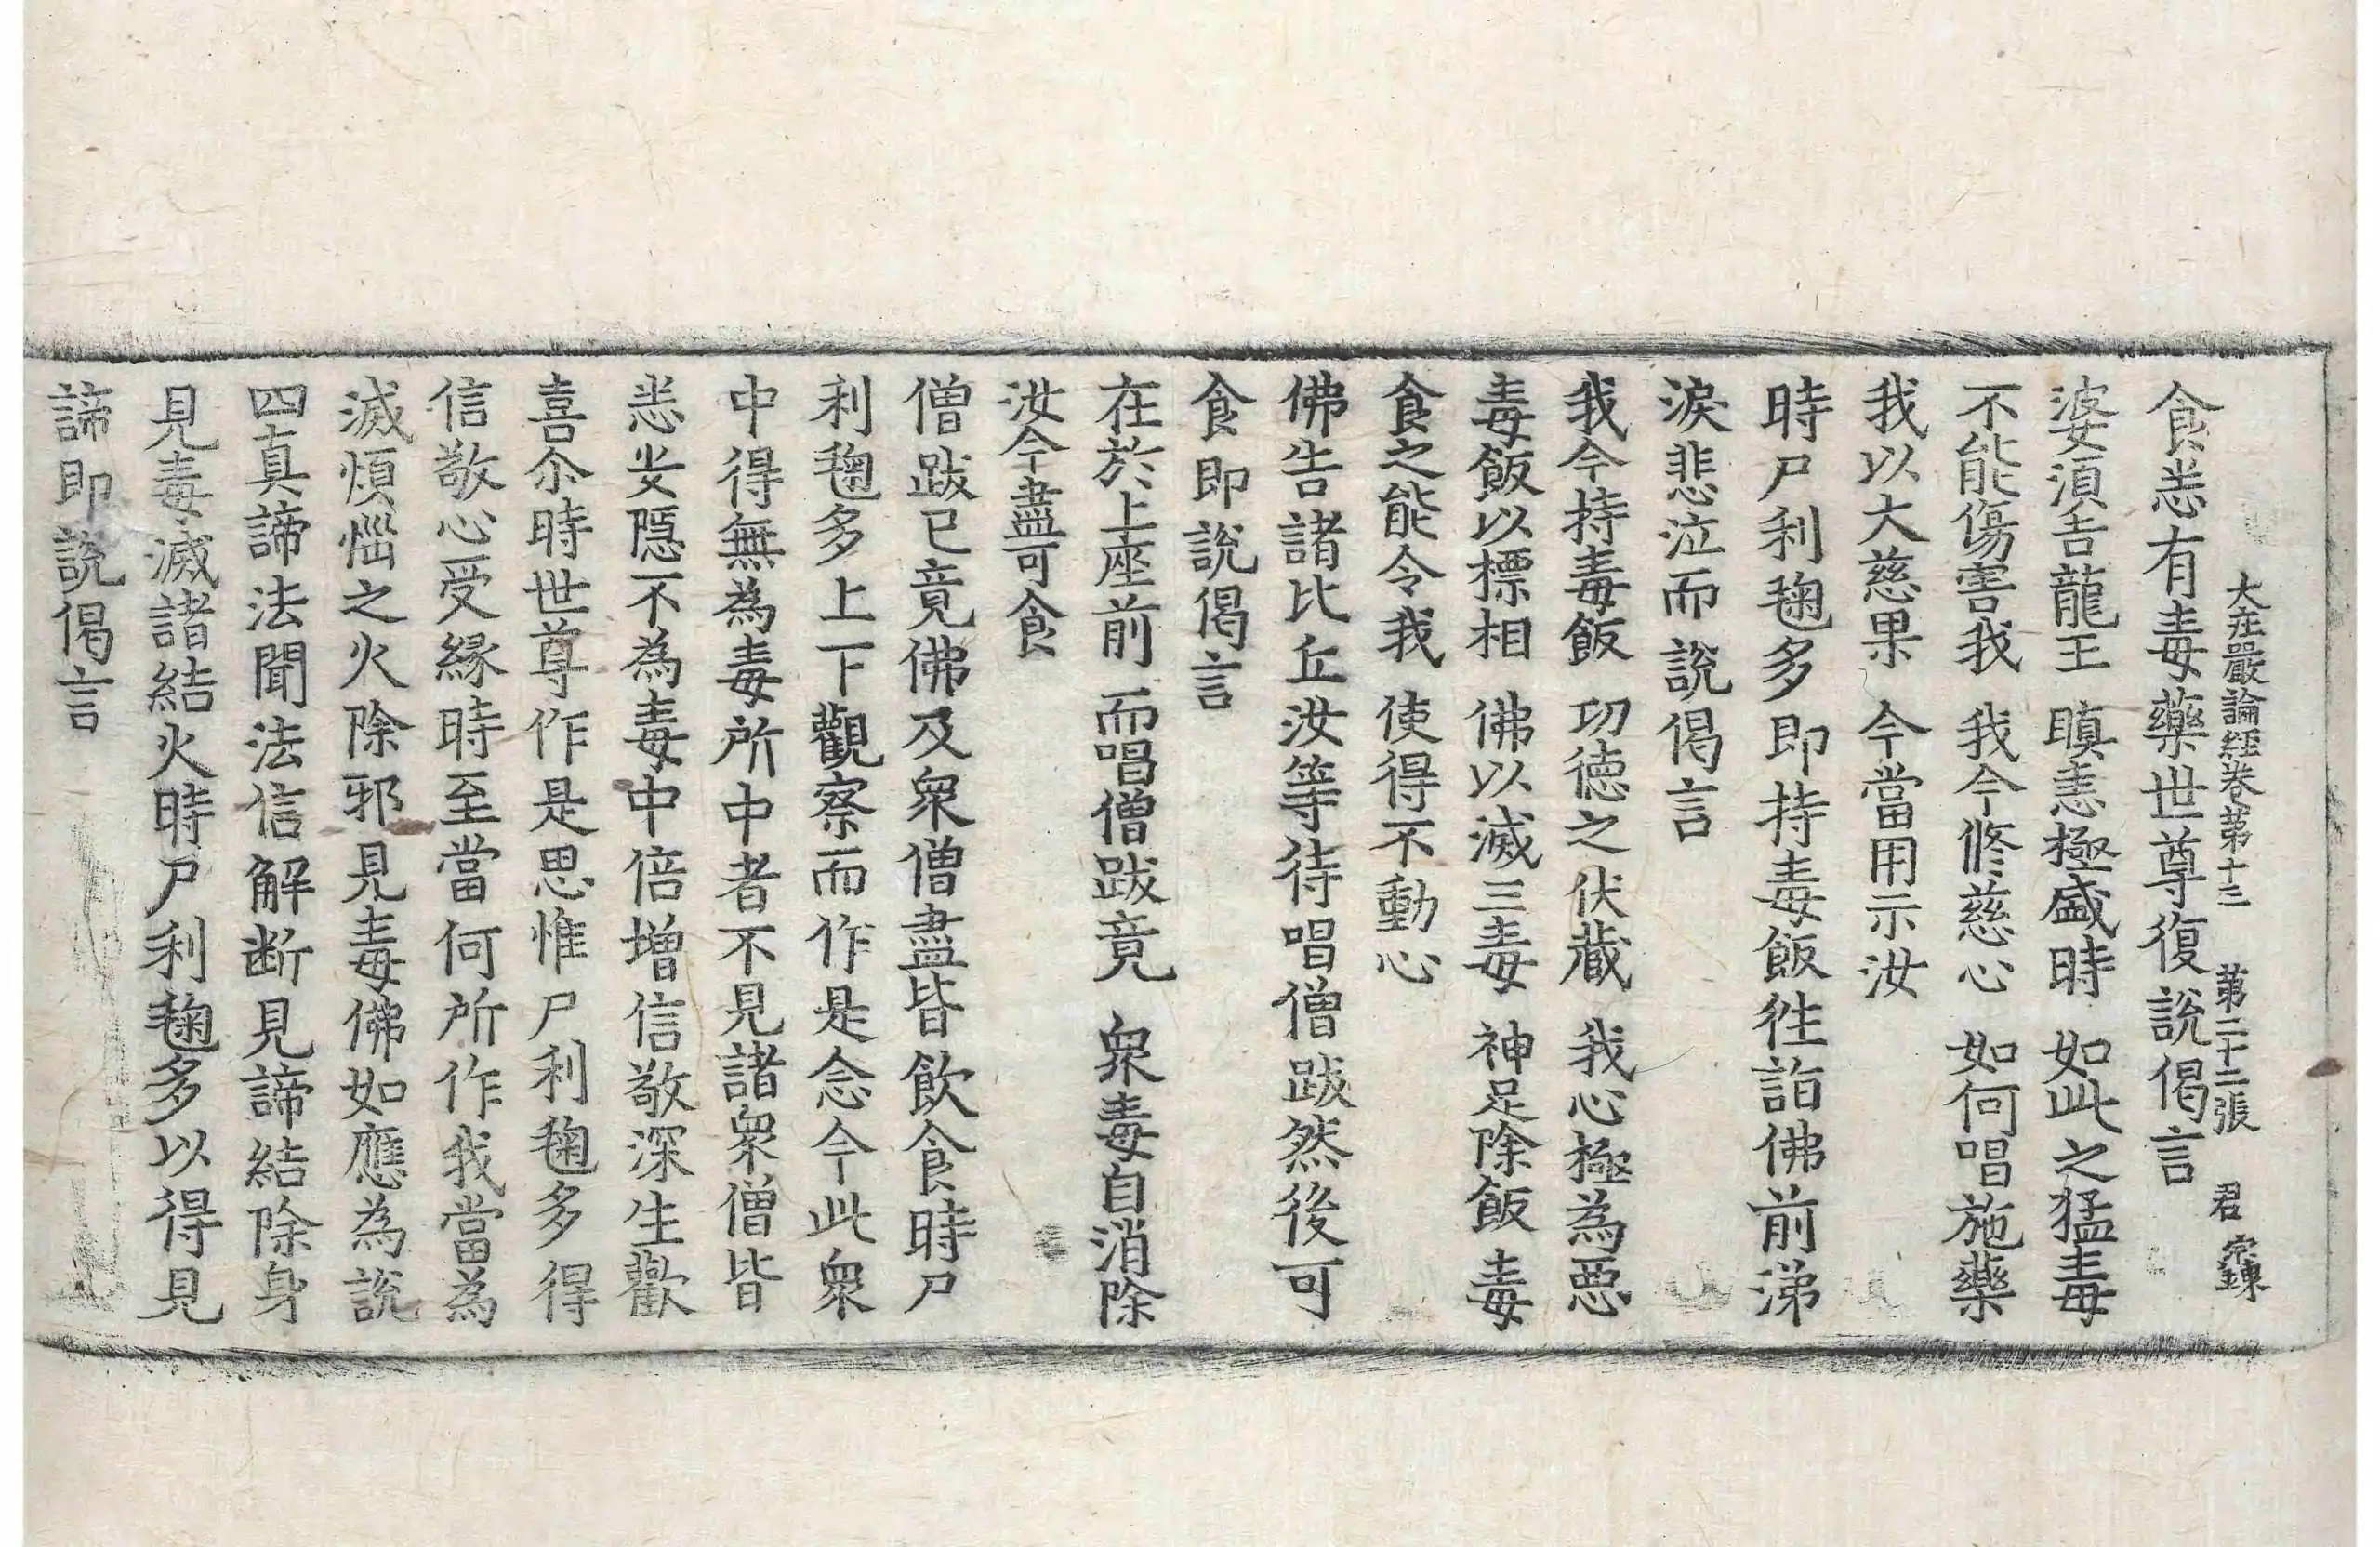 大庄嚴論經卷第十三 第二十二張 君 㝎錬
食恙有毒藥世尊復說偈言
婆湏吿龍王 瞋恚極盛時 如此之猛毒
不能傷害我 我今修慈心 如何唱施藥
我以大慈果 今當用示汝
時尸利毱多即持毒飯徃詣佛前涕
淚悲泣而說偈言
我今持毒飯 功德之伏藏 我心極為惡
毒飯以標相 佛以滅三毒 神足除飯毒
食之能令我 使得不動心
佛告諸比丘汝等待唱僧跋然後可
食即說偈言
在於上座前 而唱僧跋竟 衆毒自消除
汝今盡可食
僧跋已竟佛及衆僧盡皆飲食時尸
利毱多上下觀察而作是念今此衆
中得無為毒所中者不見諸衆僧皆
恙安隠不為毒中倍增信敬深生歡
喜尒時世尊作是思惟尸利毱多得
信敬心受緣時至當何所作我當為
滅煩惱之火除邪見毒佛如應為說
四真諦法聞法信解断見諦結除身
見毒滅諸結火時尸利毱多以得見
諦即說偈言